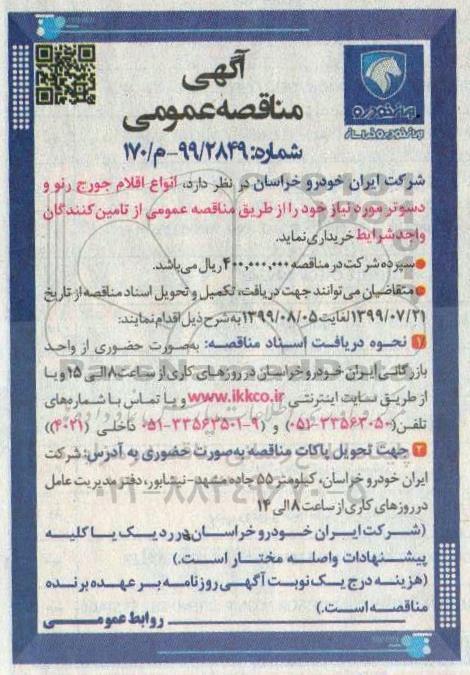 ایران خودرو
ایران خودرو خراسان
آگهی
مناقصه عمومی
شماره: ۹۹/۲۸۴۹-م/۱۷۰
شرکت ایران خودرو خراسان در نظر دارد، انواع اقلام جورج رنو و
دسوتر مورد نیاز خود را از طریق مناقصه عمومی از تامین کنندگان
واجد شرایط خریداری نماید.
سپرده شرکت در مناقصه ۴۰۰,۰۰۰,۰۰۰ ریال می‌باشد.
متقاضیان می توانند جهت دریافت، تکمیل و تحویل اسناد مناقصه از تاریخ
۱۳۹۹/۰۷/۲۱ لغایت ۱۳۹۹/۰۸/۰۵ به شرح ذیل اقدام نمایند:
۱ نحوه دریافت اسناد مناقصه: به‌صورت حضوری از واحد
بازرگانی ایران خودرو خراسان در روزهای کاری از ساعت ۸ الی ۱۵ و یا
از طریق سایت اینترنتی www.ikkco.ir و یا تماس با شماره‌های
تلفن (۰۵۱-۳۳۵۶۳۰۵۰) و (۹-۰۵۱-۳۳۵۶۳۵۰۱ داخلی (۴۰۲۱))
۲ جهت تحویل پاکات مناقصه به‌صورت حضوری به آدرس: شرکت
ایران خودرو خراسان، کیلومتر ۵۵ جاده مشهد-نیشابور، دفتر مدیریت عامل
در روزهای کاری از ساعت ۸ الی ۱۴
(شرکت ایران خودرو خراسان در رد یک یا کلیه
پیشنهادات واصله مختار است.)
(هزینه درج یک نوبت آگهی روزنامه بر عهده برنده
مناقصه است.)
روابط عمومی
۰۲۱-۸۸۳۴۹۶۷۰-۵